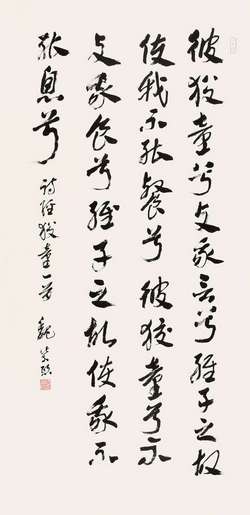 彼狡童兮与我言兮維子之故
使我不能餐兮彼狡童兮不
与我食兮維子之故使我不
能息兮
詩經狡童一首 魏